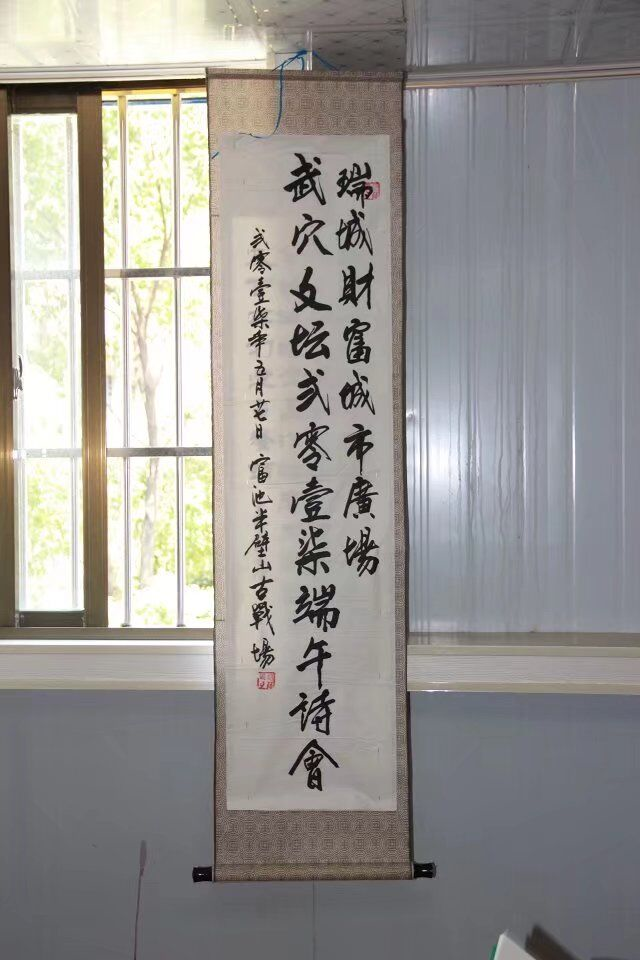 瑞城財富城市廣場
武穴文坛弐零壹柒端午诗會
弐零壹柒年五月廿七日 富池半壁山古戰場